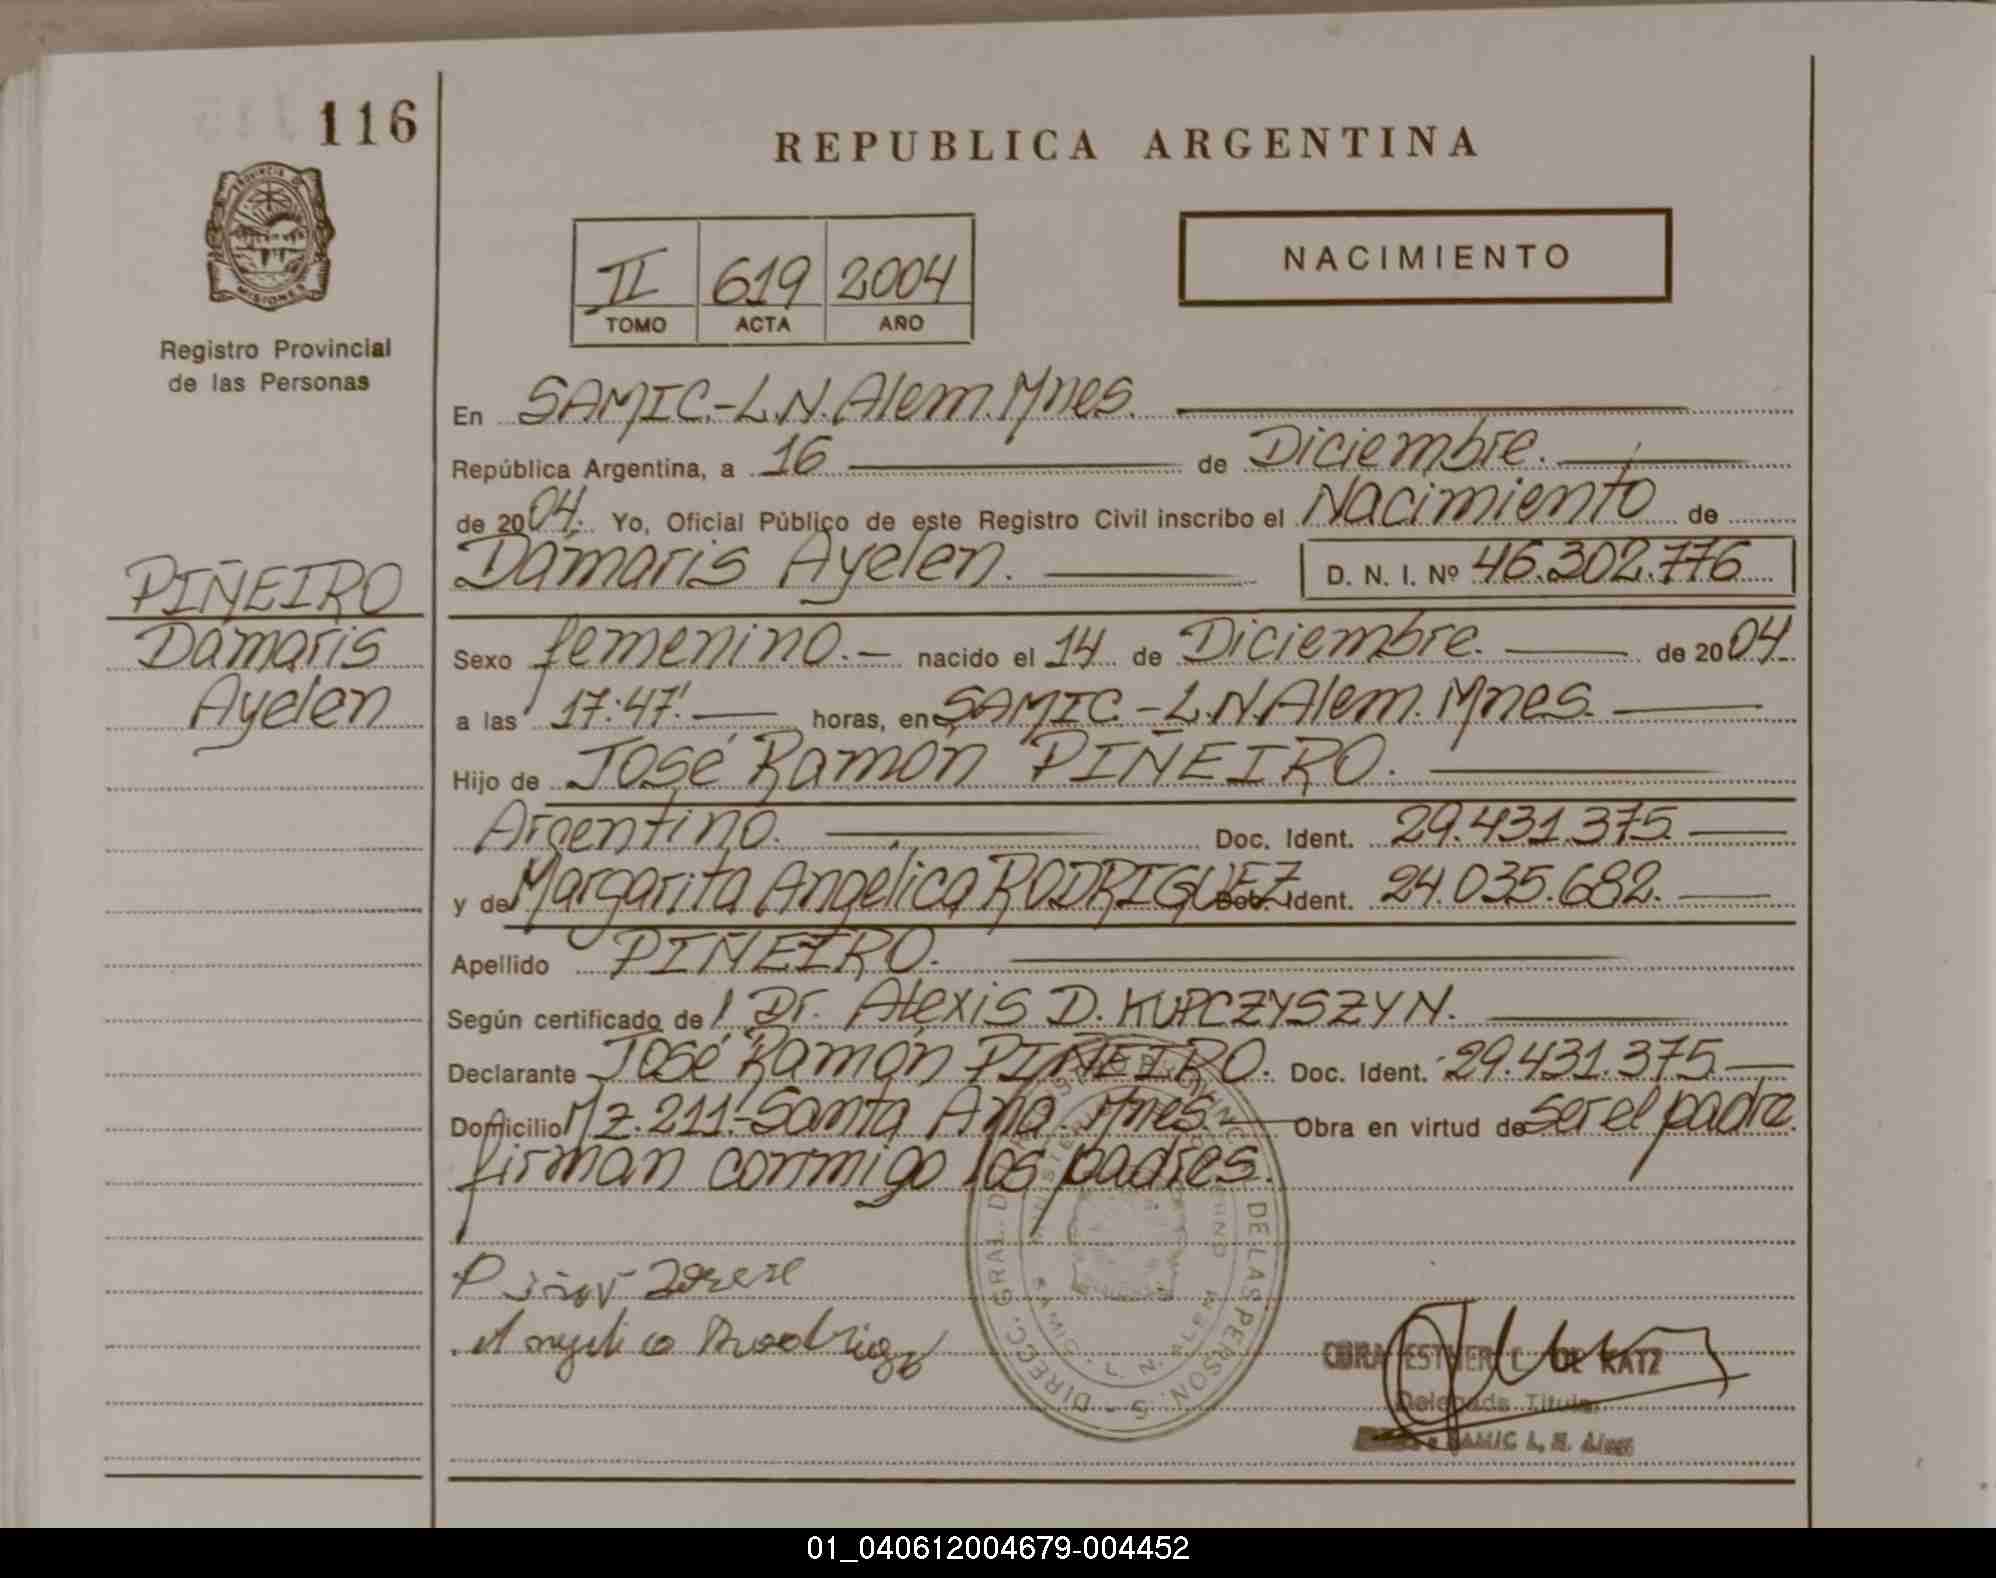 116
REPUBLICA ARGENTINA
PROVINCIA D
MISIONES
Registro Provincial
de las Personas
II 619 2004
TOMO ACTA AÑO
NACIMIENTO
En SAMIC.-L.N.Alem.Mnes.
República Argentina, a 16 de Diciembre.
de 2004. Yo, Oficial Público de este Registro Civil inscribo el Nacimiento de
Dámaris Ayelen. D. N. I. Nº 46.302.776
PIÑEIRO
Dámaris
Ayelen
Sexo femenino.- nacido el 14 de Diciembre. de 2004.
a las 17:47'. horas, en SAMIC.-L.N.Alem.Mnes.
Hijo de José Ramón PIÑEIRO.
Argentino. Doc. Ident. 29.431.375
y de Margarita Angélica RODRIGUEZ Doc. Ident. 24.035.682.
Apellido PIÑEIRO.
Según certificado de Dr. Alexis D. KUPCZYSZYN.
Declarante José Ramón PIÑEIRO. Doc. Ident. 29.431.375
Domicilio Mz.211.-Santa Ana. Mnes.- Obra en virtud de ser el padre.
firman conmigo los padres.
Angelica Rodrigez
DIRECC. GRAL. DE LAS PERSON S - L. N. ALEM
ESTHER L. DE KATZ
Delegada Titular
SAMIC L. N. Alem
01_040612004679-004452